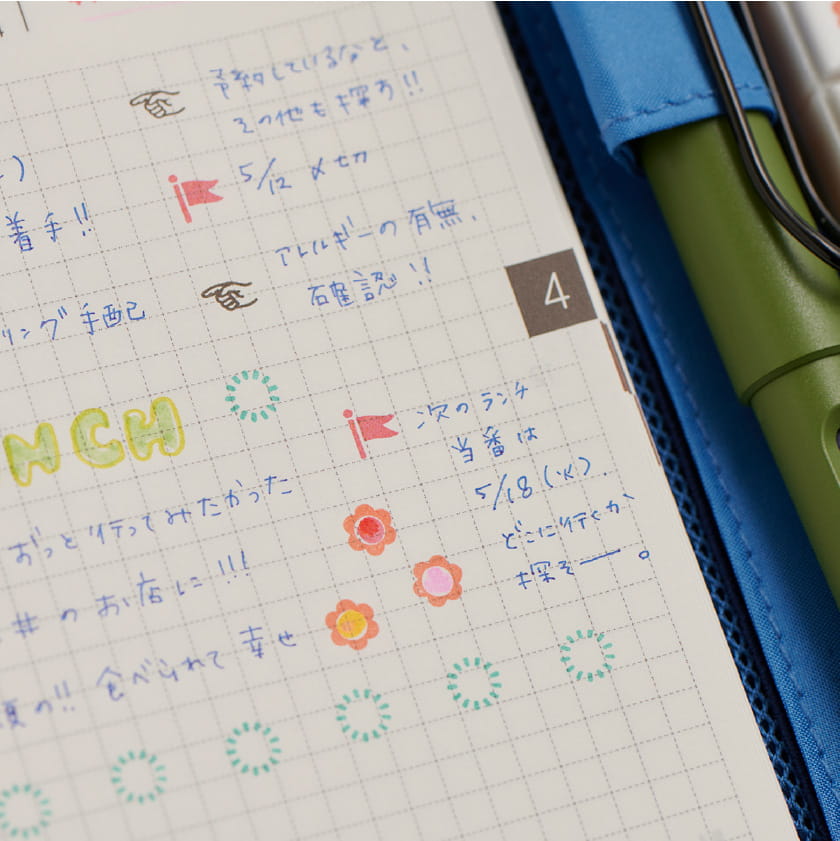 その他も探す!!
5/12 〆切
着手!!
アレルギーの有無、
確認!!
リング手配
4
NCH
次のランチ
当番は
5/18(火).
どこに行くか
探そー。
ずっと行ってみたかった
丼のお店に!!!
の!! 食べられて幸せ